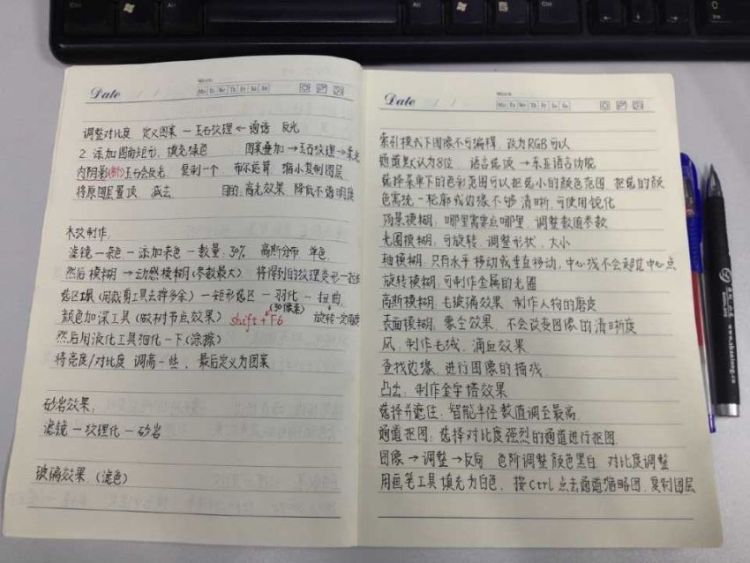 Date
Mo Tu We Th Fr Sa Su
调整对比度 定义图案 — 玉石纹理 ← 通道 反光
2 添加圆角矩形,填充绿色 图案叠加→玉石纹理→柔光
内阴影(新)玉石会反光,复制一个 布尔运算 缩小复制图层
将原图层置顶 减去 目的:高光效果 降低不透明度
木纹制作:
滤镜—杂色—添加杂色—数量:30% 高斯分布 单色
然后 模糊→动感模糊(参数最大) 将得到的纹理变形一些
选区工具(用裁剪工具去掉多余)—矩形选区—羽化—扭曲
(30像素)
颜色加深工具(做树节点效果) shift+F6 旋转一定角度
然后用液化工具细化一下(涂擦)
将亮度/对比度 调高一些,最后定义为图案
砂岩效果:
滤镜—纹理化—砂岩
玻璃效果:(滤色)
Date
Mo Tu We Th Fr Sa Su
索引模式下图像不可编辑,改为RGB可以
通道默认为8位 语言选项→东亚语言功能
选择菜单下的色彩范围可以把乱小的颜色范围 把乱的颜
色高洗—轮廓或边缘不够清晰,可使用锐化
场景模糊:哪里需要点哪里,调整数值参数
光圈模糊:可旋转、调整形状、大小
轴模糊:只有水平移动或垂直移动,中心线不会超过中心点
旋转模糊:可制作金属的光圈
高斯模糊:毛玻璃效果 制作人物的磨皮
表面模糊:雾尘效果,不会改变图像的清晰度
风:制作毛绒,滴血效果
查找边缘:进行图像的描线
凸出:制作金字塔效果
选择并遮住:智能半径数值调至最高
通道抠图:选择对比度强烈的通道进行抠图
图像→调整→反向 色阶调整颜色黑白 对比度调整
用画笔工具填充为白色,按Ctrl点击通道缩略图.复制图层